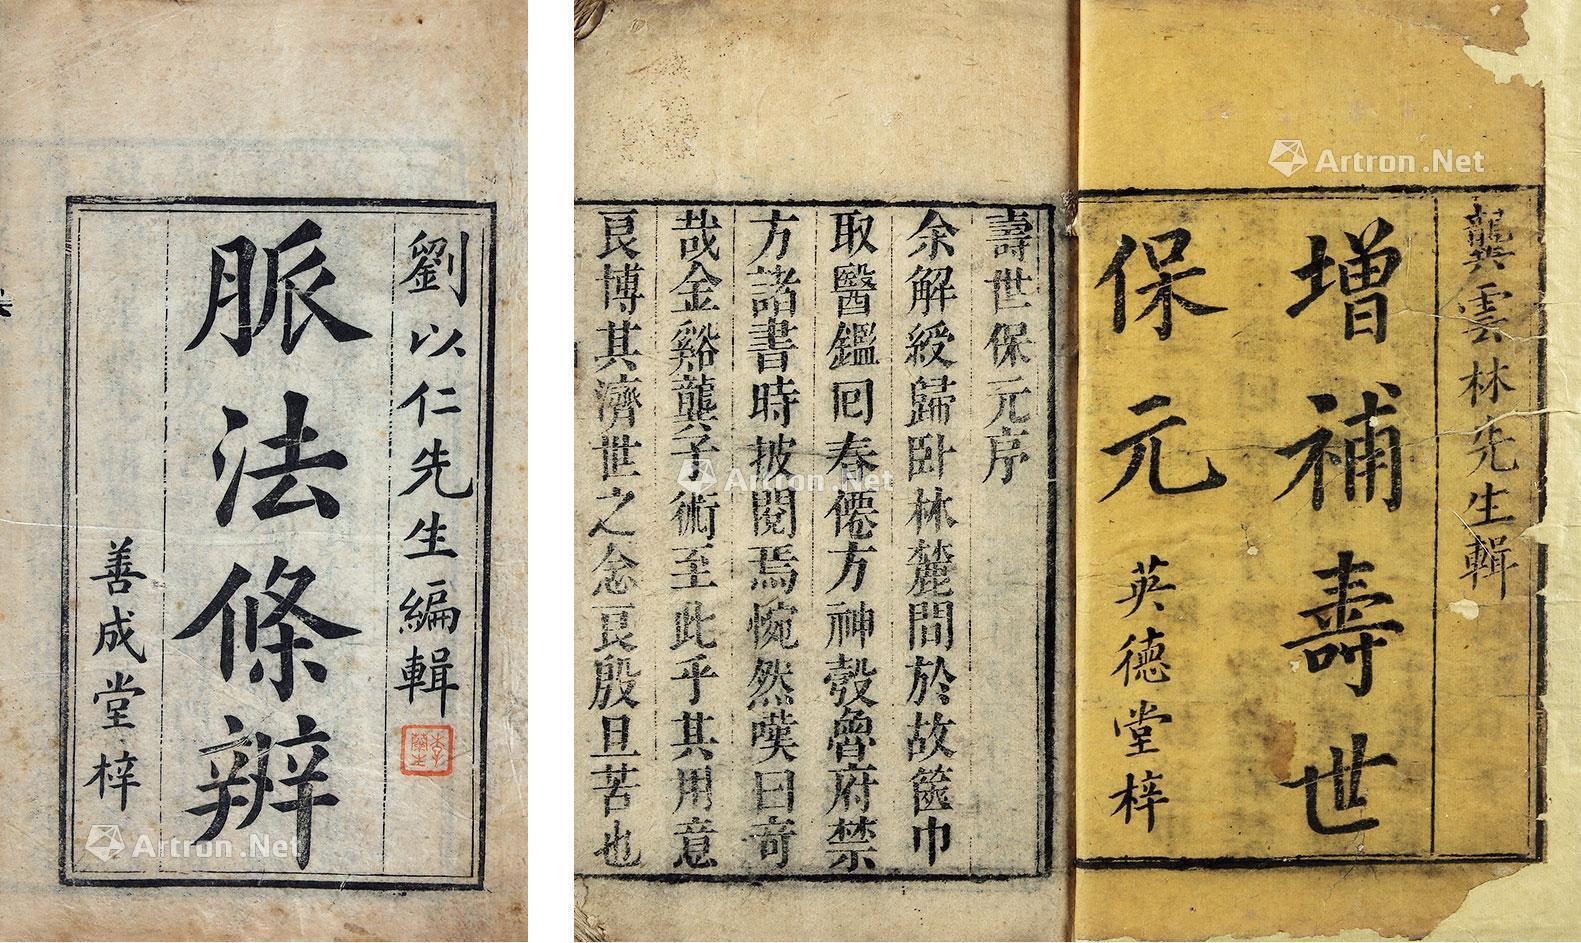 劉以仁先生編輯
脈法條辨
善成堂梓
龔雲林先生輯
增補壽世
保元
英德堂梓
壽世保元序
余解綬歸卧林麓間於故篋巾
取醫鑑回春僊方神彀魯府禁
方諸書時披閱焉惋然嘆曰奇
哉金谿龔子術至此乎其用意
良博其濟世之念良殷且苦也
Artron.Net
Artron.Net
Artron.Net